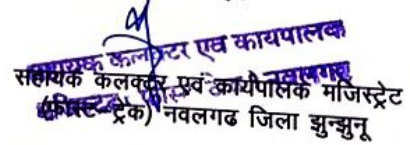 सहायक कलक्टर एवं कार्यपालक
सहायक कलक्टर एवं कार्यपालक मजिस्ट्रेट
(फास्ट-ट्रेक) नवलगढ जिला झुन्झुनू